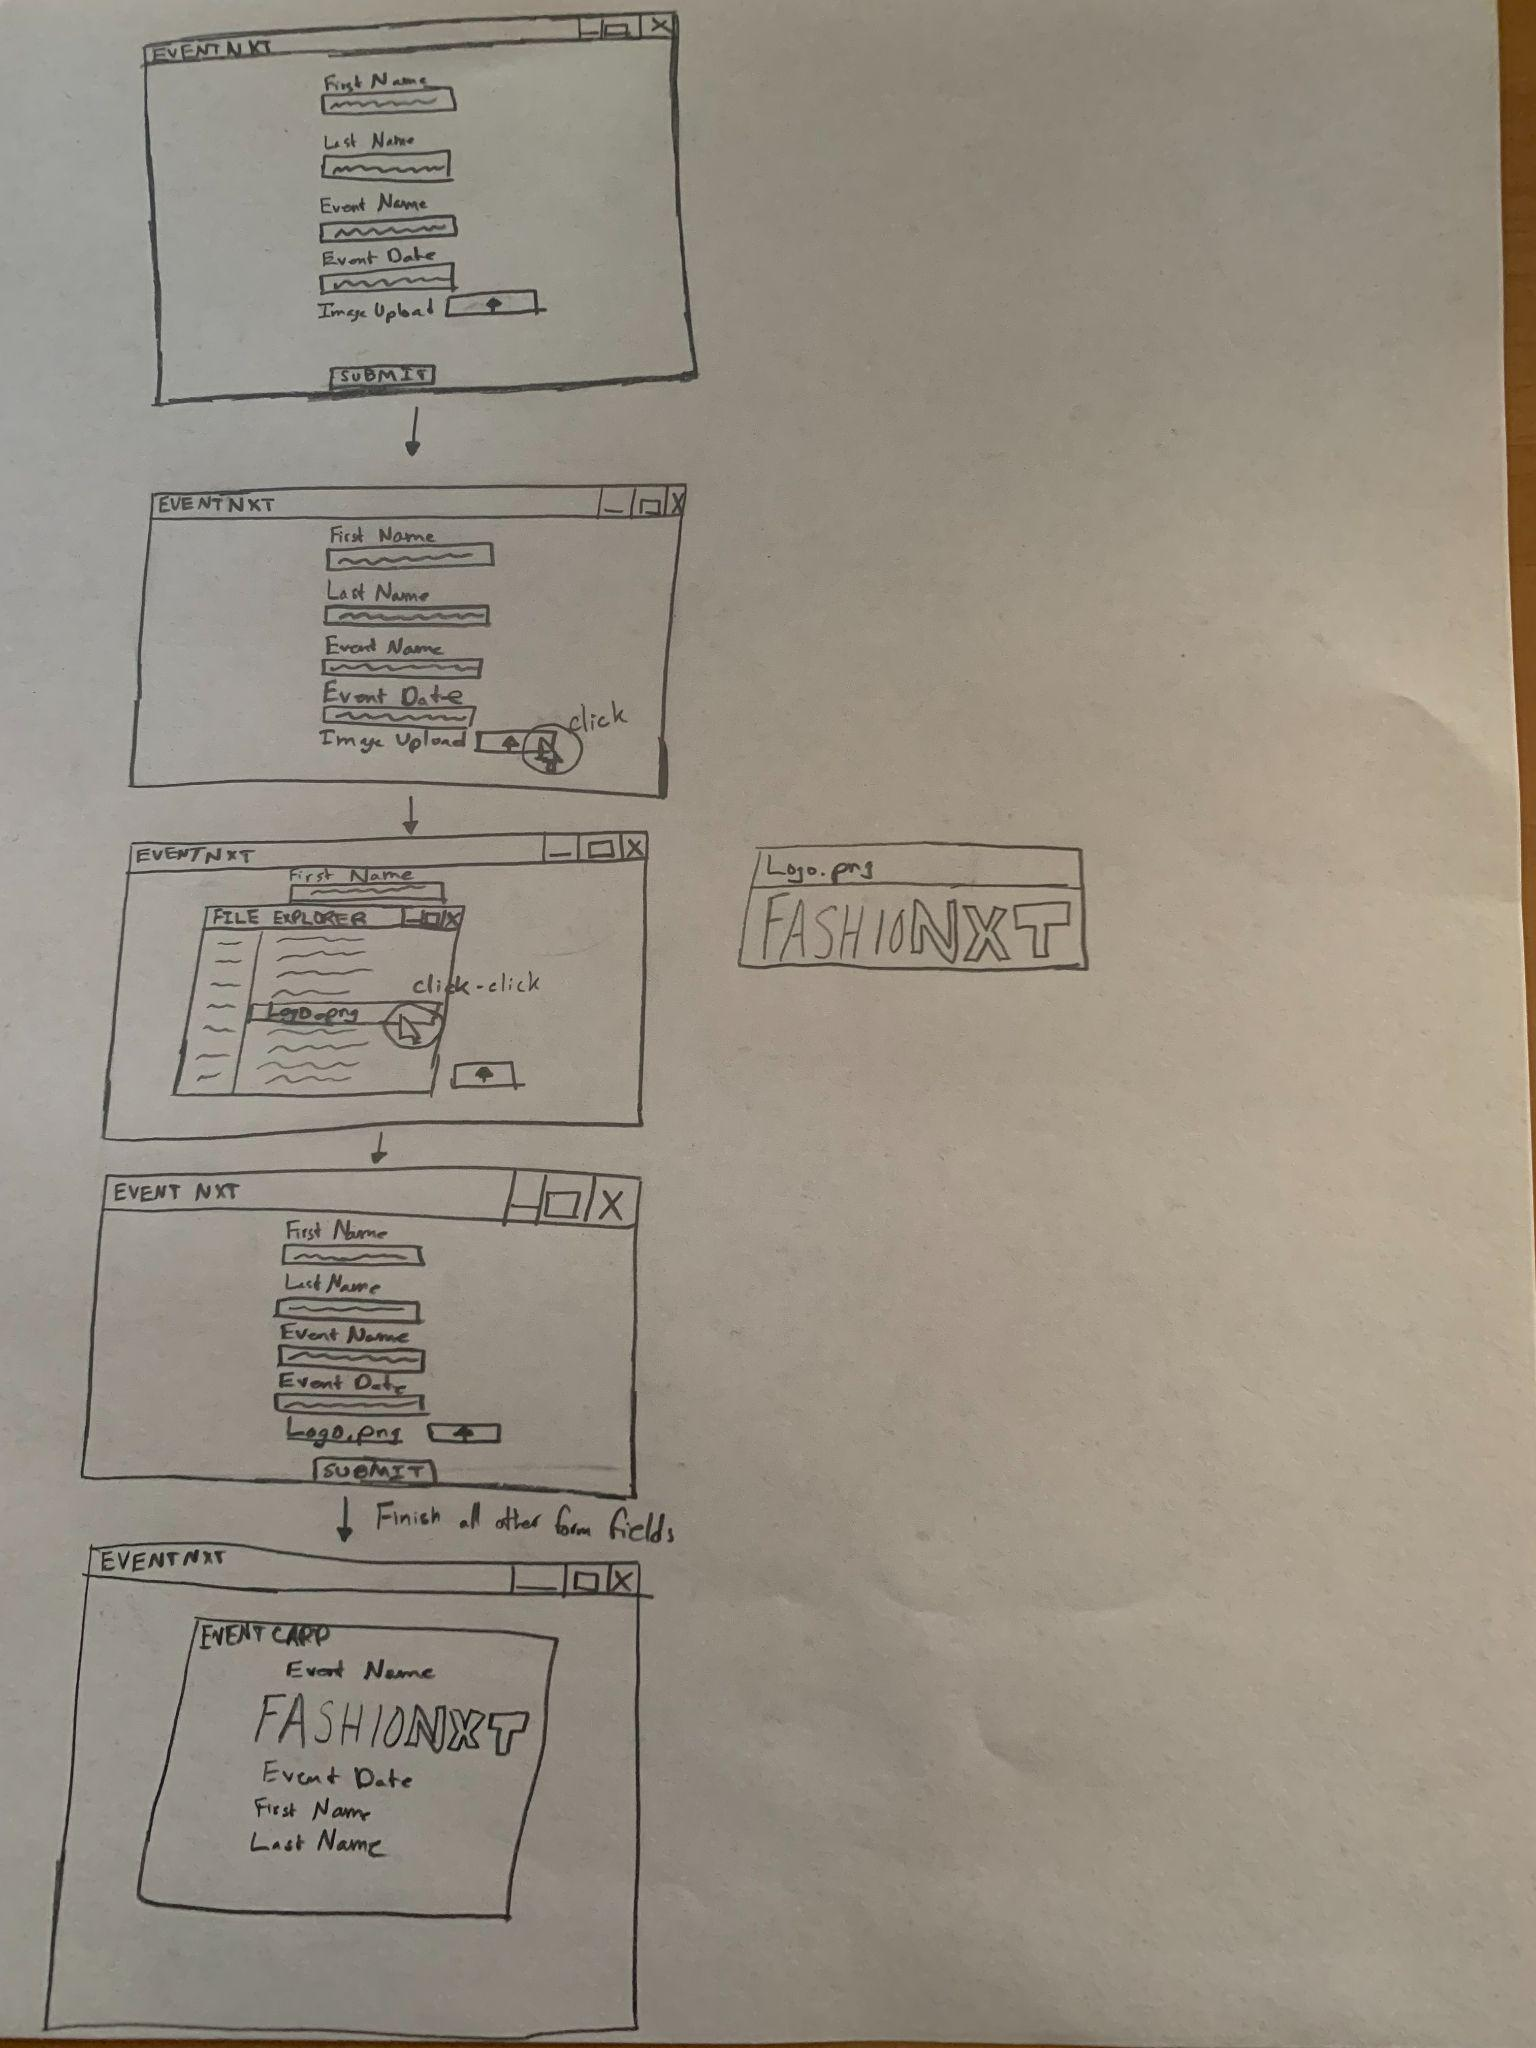 EVENTNXT
X
First Name
Last Name
Event Name
Event Date
Image Upload
SUBMIT
EVENTNXT
X
First Name
Last Name
Event Name
Event Date
click
Image Upload
EVENTNXT
X
First Name
FILE EXPLORER
X
click-click
Logo.png
Logo.png
FASHIONXT
EVENT NXT
X
First Name
Last Name
Event Name
Event Date
Logo.png
SUBMIT
Finish all other form fields
EVENTNXT
X
EVENT CARD
Event Name
FASHIONXT
Event Date
First Name
Last Name